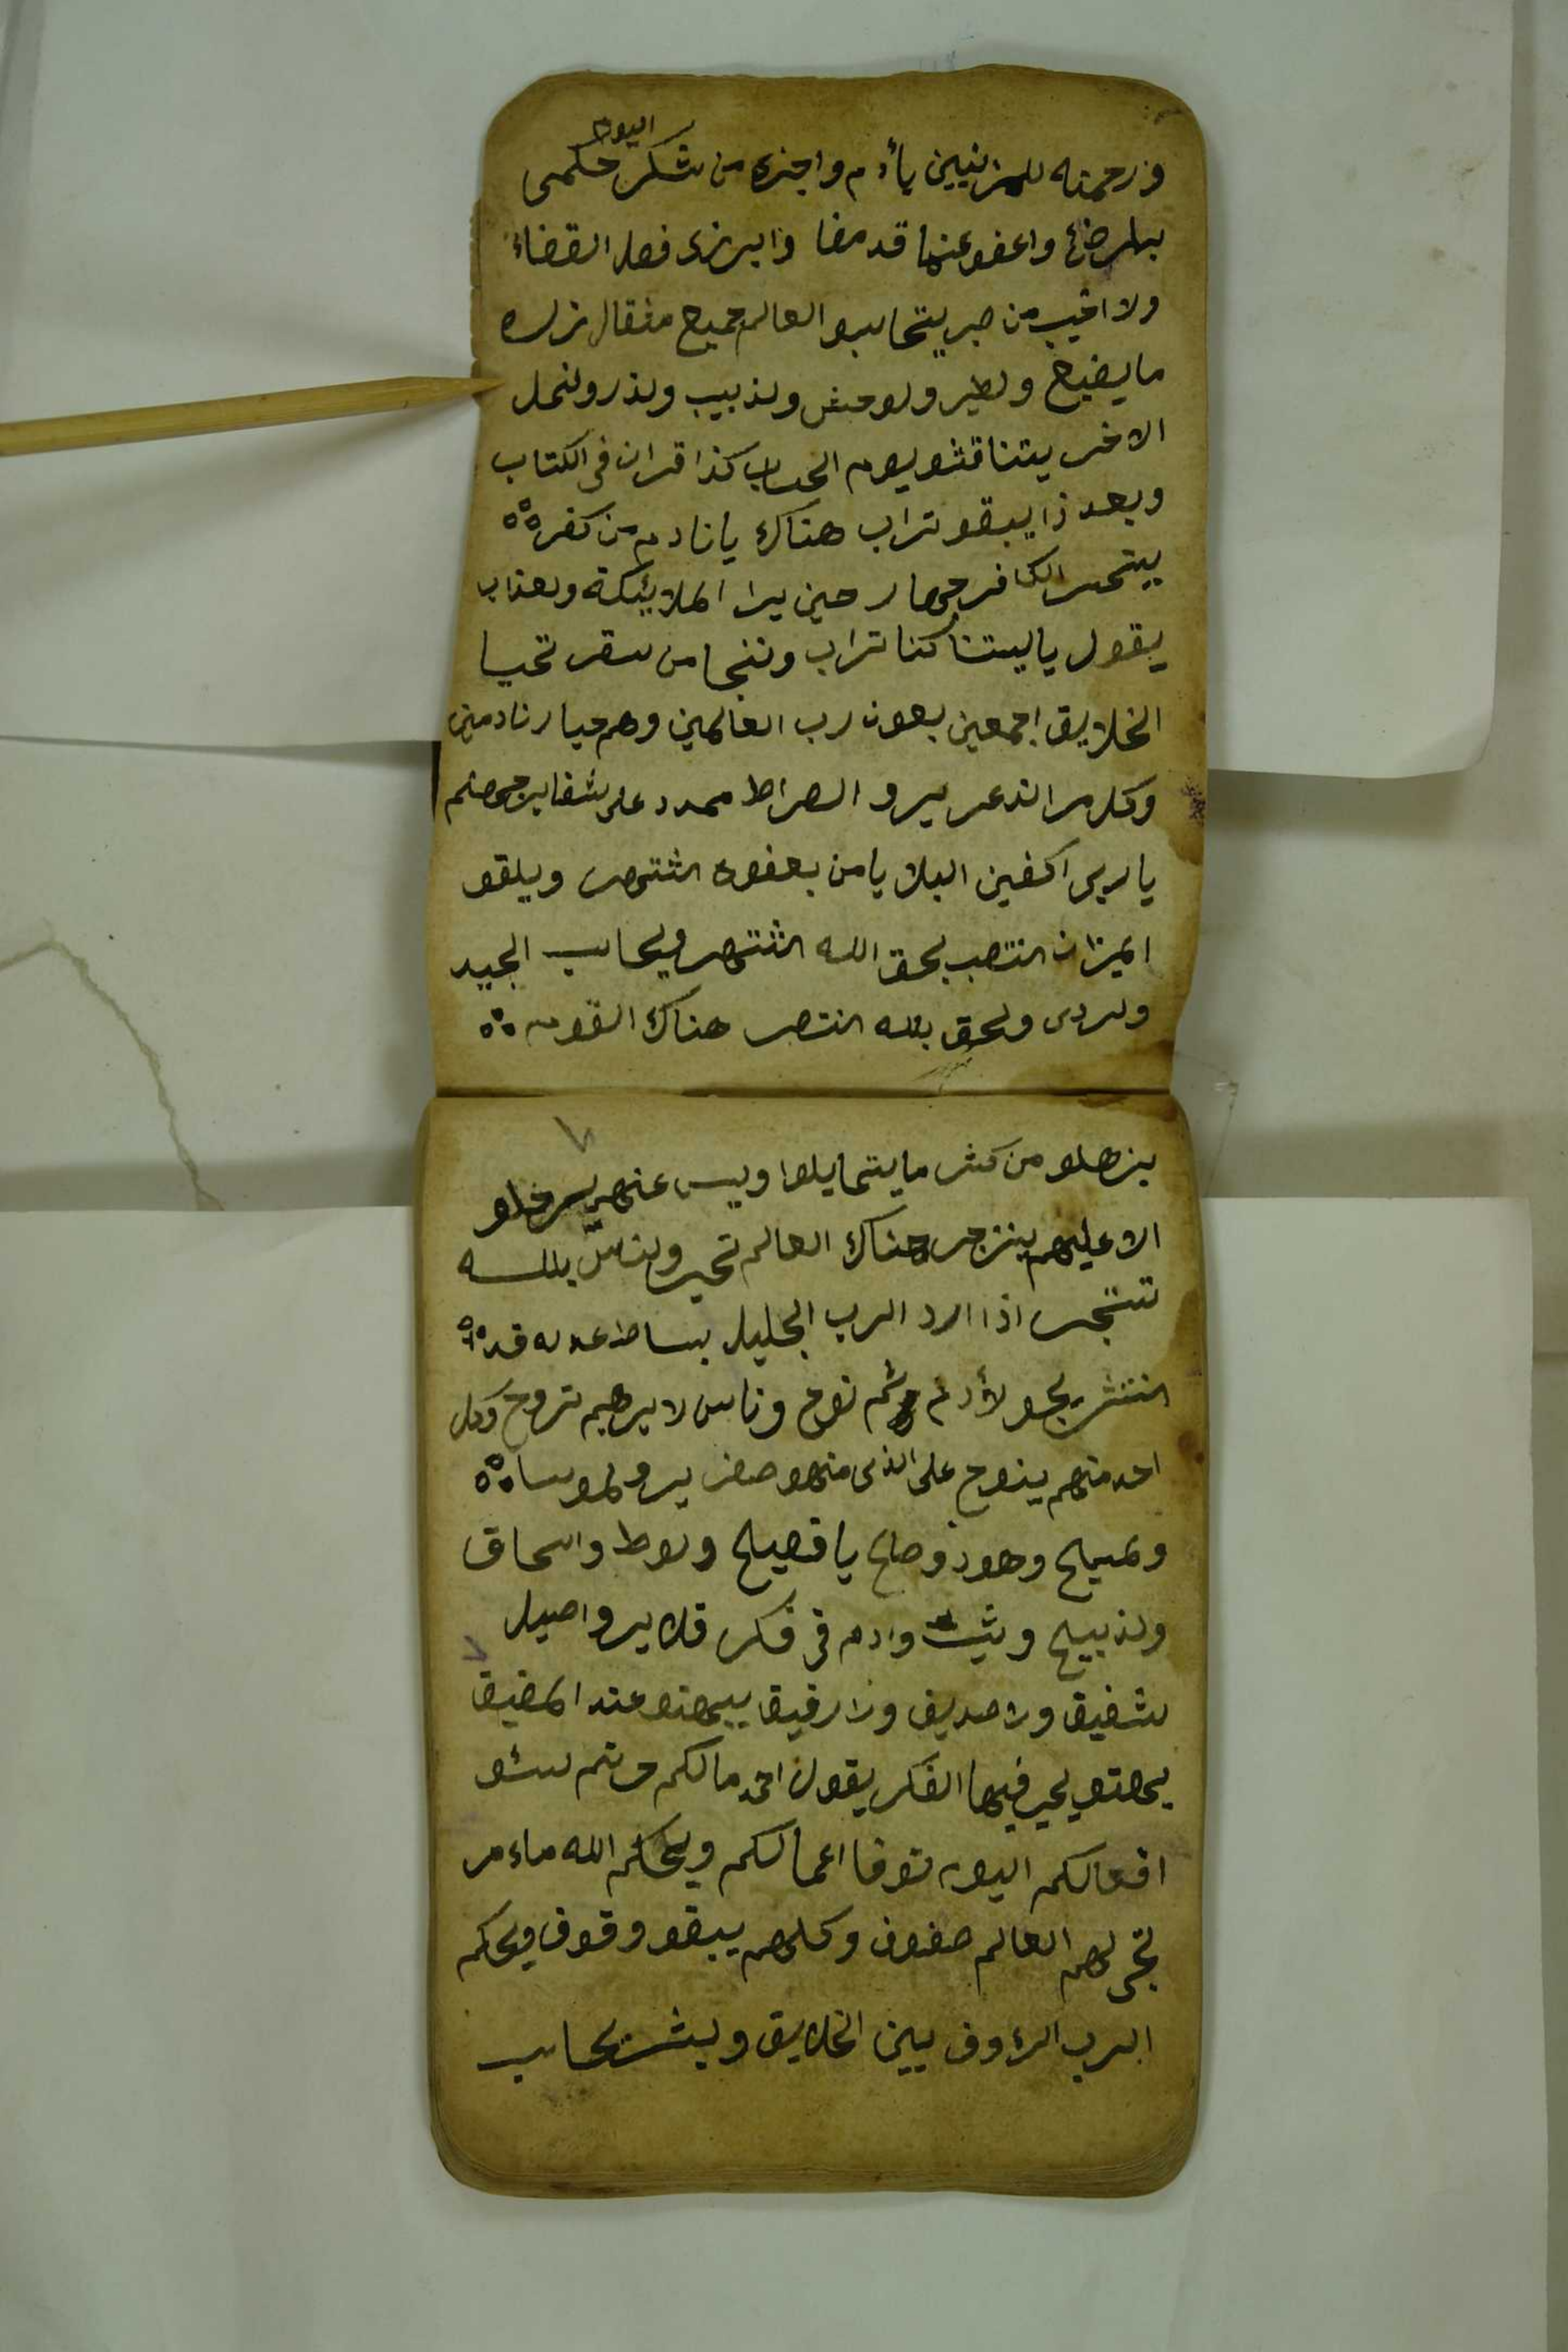 اليوم
ورحمته للمزنبين يأدم واجزى من شكر حكمى
بالرضى واعفو عنها قد مضا وابرزى فصل القضاء
ولا اخيب من صبر يتحاسبو العالم جميع مثقال زره
ما يضيع ولطير ولوحش ولذبيب ولذر ولنمل
الاخر يتناقشو يوم الحساب كذا قران فى الكتاب
وبعد ذا يبقو تراب هناك يا نادم من كفر
يتحسر الكافر جهار حين يرا الملائكة ولعذاب
يقول ياليتنا كنا تراب وننجا من سقر تحيا
الخلايق اجمعين بعون رب العالمين وهم حيار نادمين
وكل من الذعر يرو الصراط ممدد على شفاير جهنم
يا ربى اكفين البلا يا من بعفوه اشتهر ويلقو
الميزان انتصب بحق الله اشتهر ويحاسب الجيد
ولردى ولحق بلله انتصر هناك القوم
يزهلو من كثر ما يتحايلوا وليس عنهم يسرفلو
الا عليهم ينزجر هناك العالم تحير ولناس بالله
تستجر اذا اراد الرب الجليل بساط عدله قد
انتشر يجو لأدم ثم نوح وناس لابرهيم تروح وكل
احد منهم ينوح على الذى منهو صفر يرو لموسا
ولمسيح وهود وصالح يا فصيح ولوط واسحاق
ولذبيح وشيث وادم فى فكر قلا يرو اصيل
شفيق ولا صديق ولا رفيق يبهتو عند المضيق
يبهتو يحير فيها الفكر يقول احمد مالكم وتم لشو
افعالكم اليوم توفا اعمالكم ويحكم الله ما امر
تجى لهم العالم صفوف وكلهم يبقو وقوف ويحكم
الرب الرؤوف بين الخلايق ولبشر يحاسب